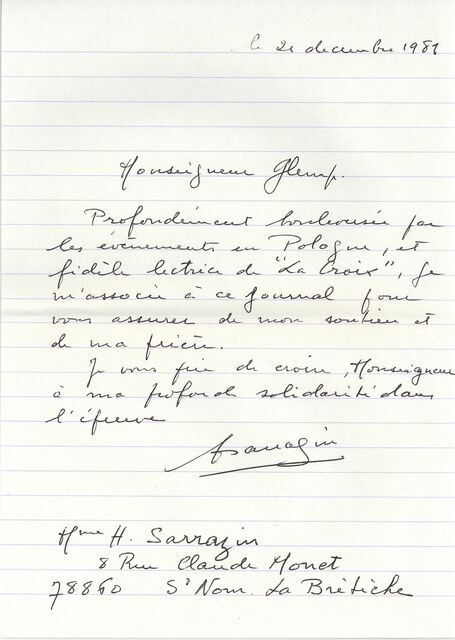 le 21 decembre 1981
Monseigneur Glemp.
Profondément bouleversée par
les évènements en Pologne, et
fidèle lectrice de "La Croix", je
m'associe à ce journal pour
vous assurer de mon soutien et
de ma prière.
Je vous prie de croire, Monseigneur
à ma profonde solidarité dans
l'épreuve
HSarrazin
Mme H. Sarrazin
8 Rue Claude Monet
78860 St Nom. La Bretèche